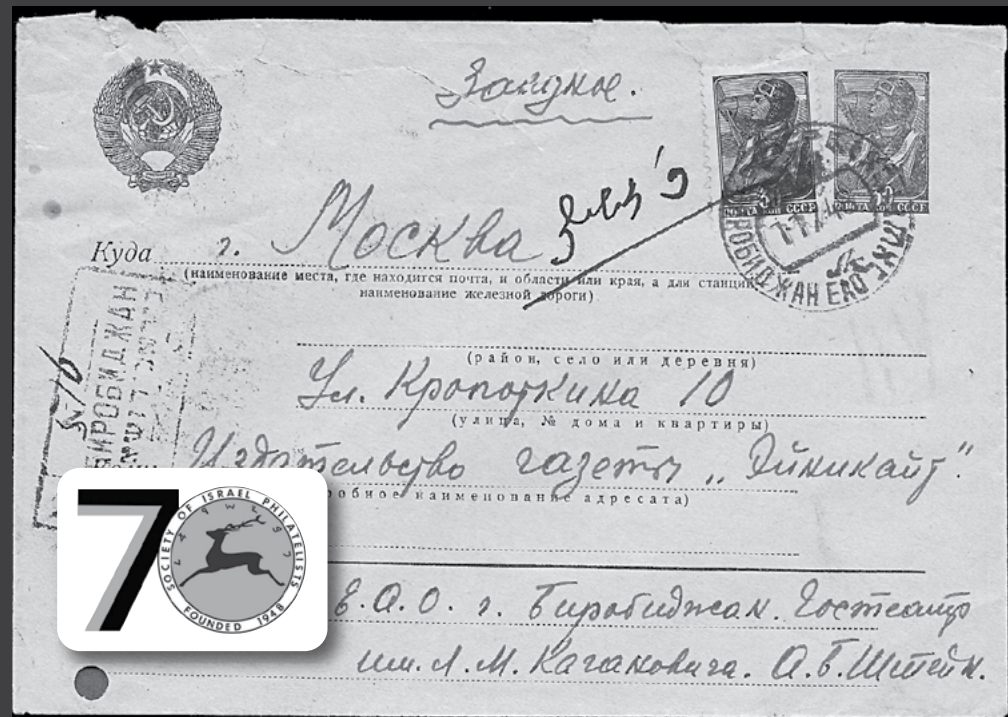 Заказное.
ПОЧТА 30 КОП СССР
г. Москва
Куда
(наименование места, где находится почта, и области или края, а для станций
наименование железной дороги)
БИРОБИДЖАН ЕАО
БИРОБИДЖАН
(район, село или деревня)
Ул. Кропоткина 10
(улица, № дома и квартиры)
Издательство газеты „Эйникайт".
наименование адресата)
70
SOCIETY OF ISRAEL PHILATELISTS
FOUNDED 1948
Е.А.О. г. Биробиджан. Гостеатр
им. Л. М. Кагановича. А. Б. Штейн.